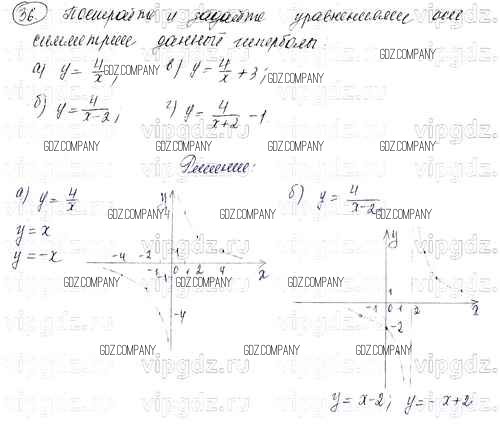 36. Постройте и задайте уравнениями оси
симметрии данной гиперболы:
а) y = 4/x; в) y = 4/x + 3;
б) y = 4/(x-2); г) y = 4/(x+2) - 1
Решение:
а) y = 4/x
y = x
y = -x
y
4
1
-4 -2 -1 0 1 2 4 x
-1
-4
б) y = 4/(x-2)
y
1
-1 0 1 2 x
-2
y = x-2; y = -x+2
GDZ.COMPANY
vipgdz.ru